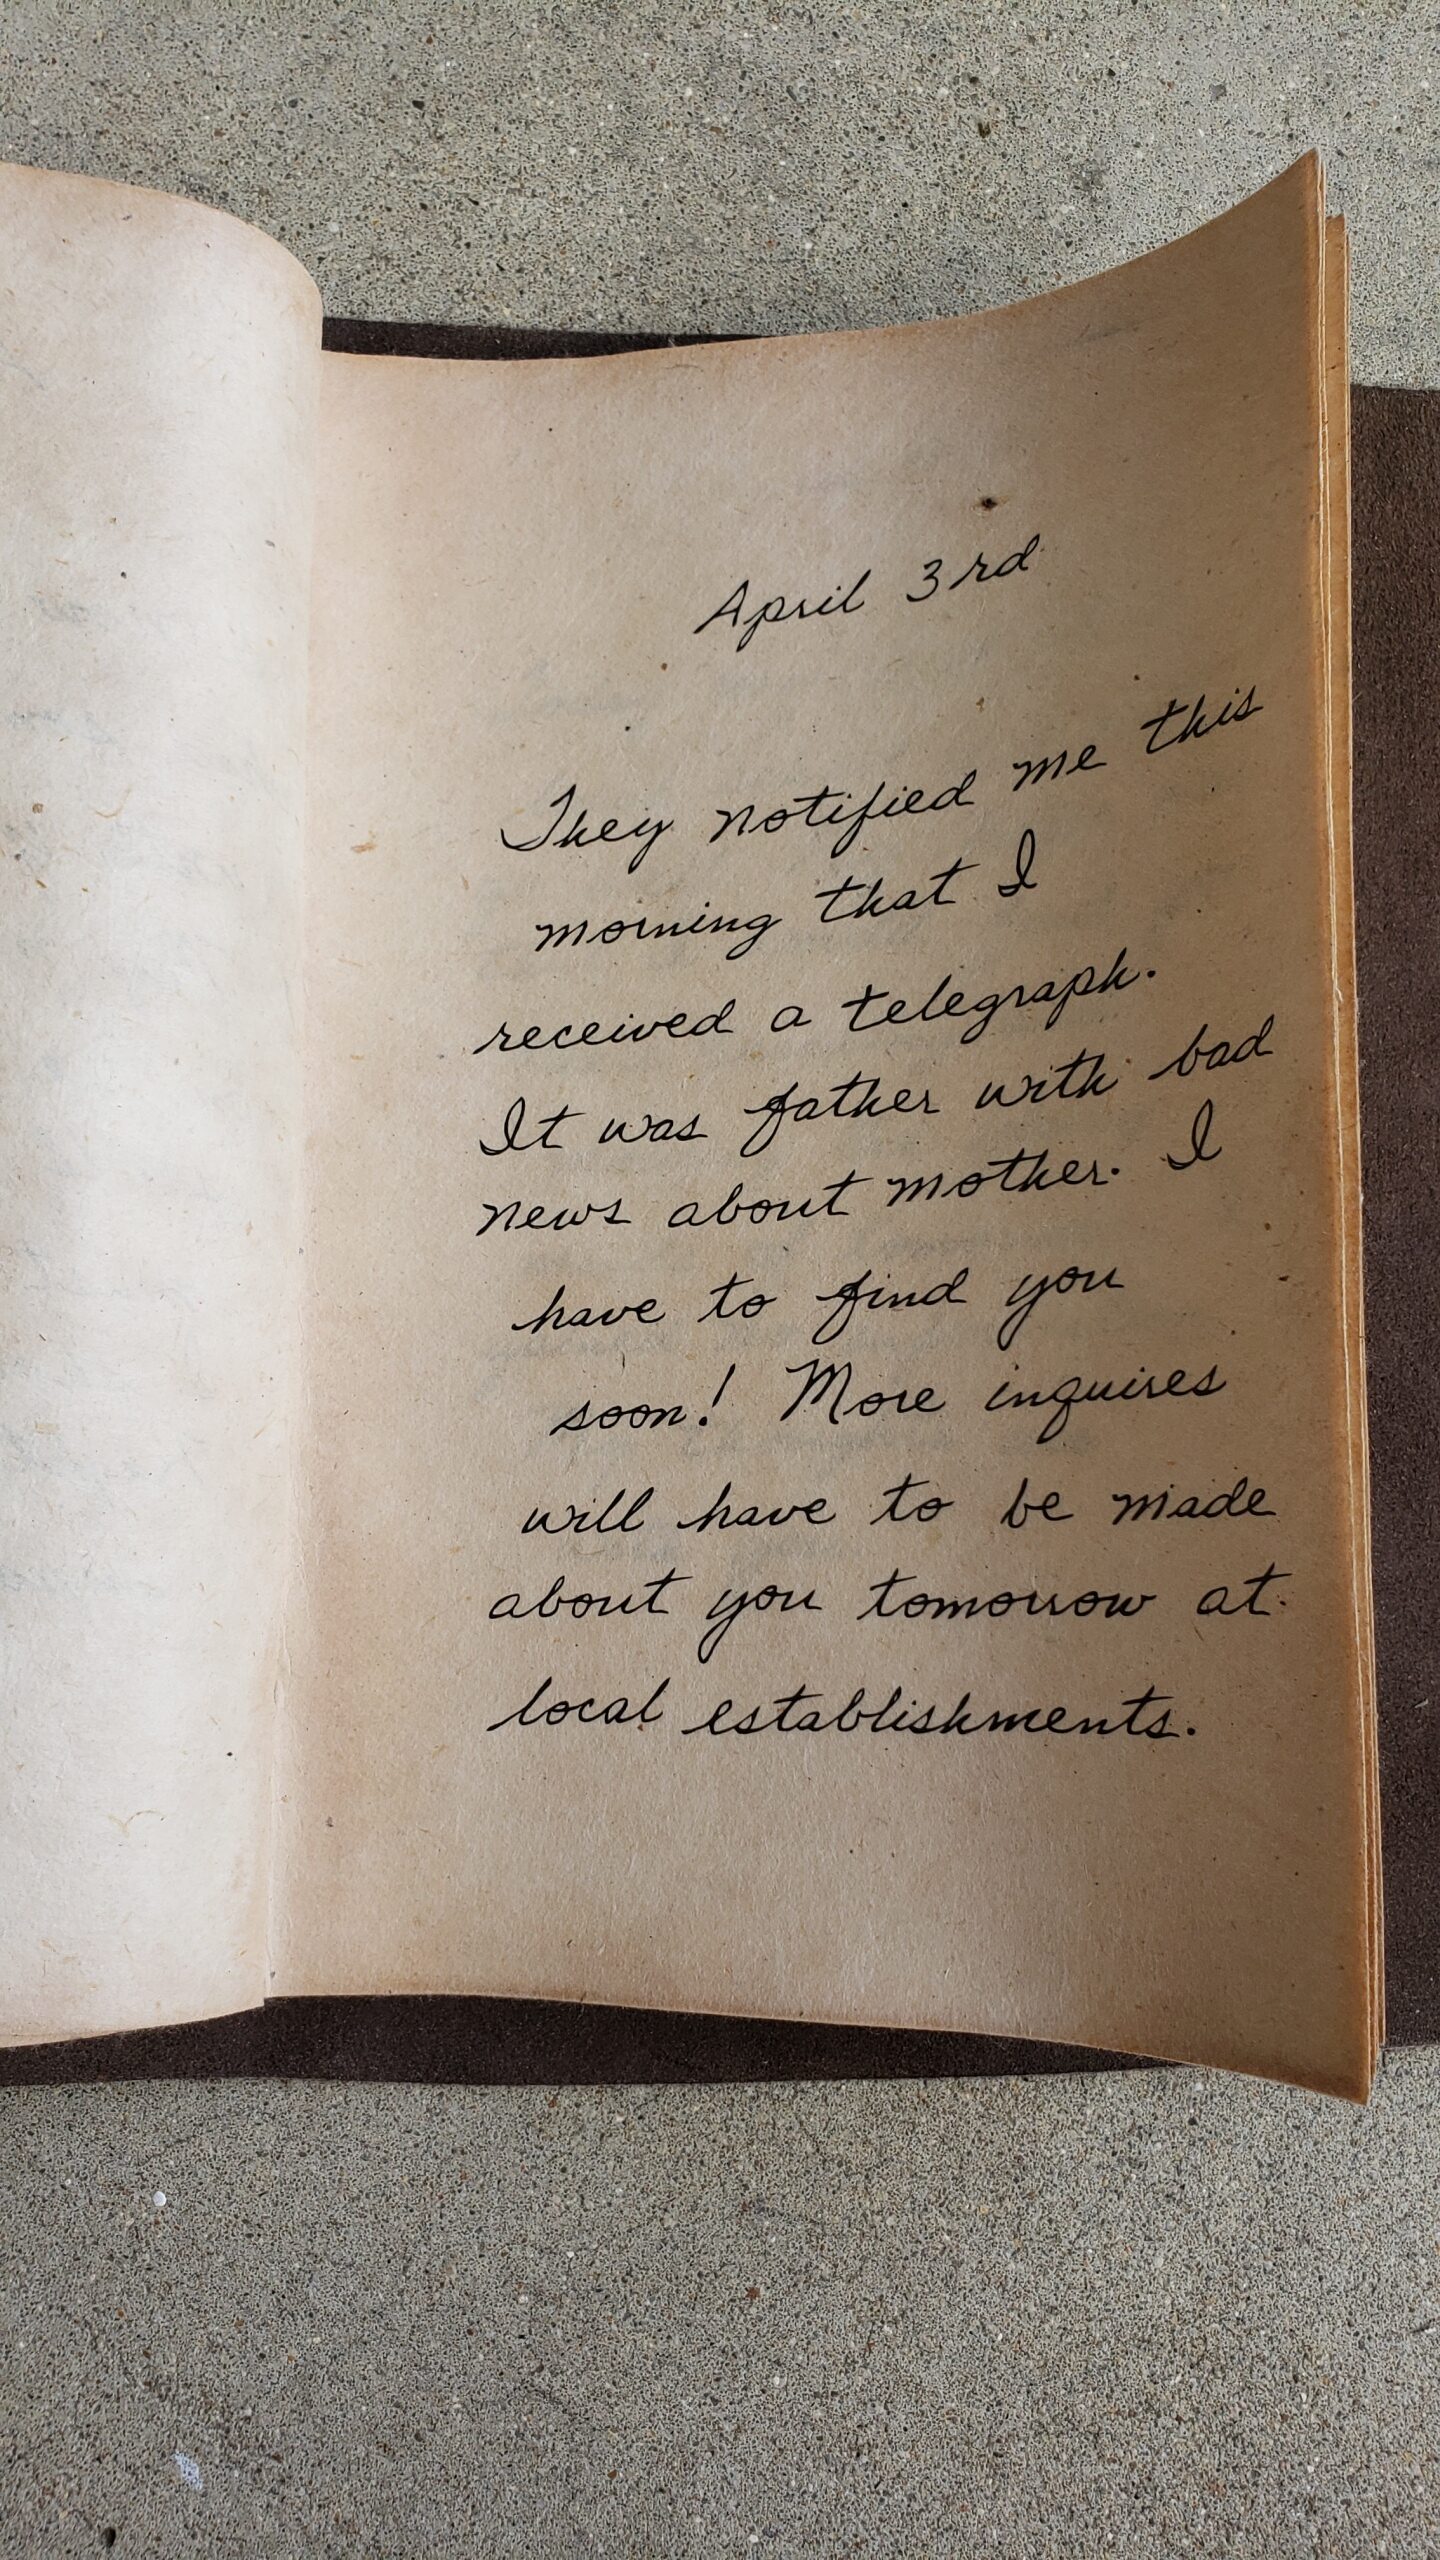 April 3rd
They notified me this
morning that I
received a telegraph.
It was father with bad
news about mother. I
have to find you
soon! More inquires
will have to be made
about you tomorrow at
local establishments.